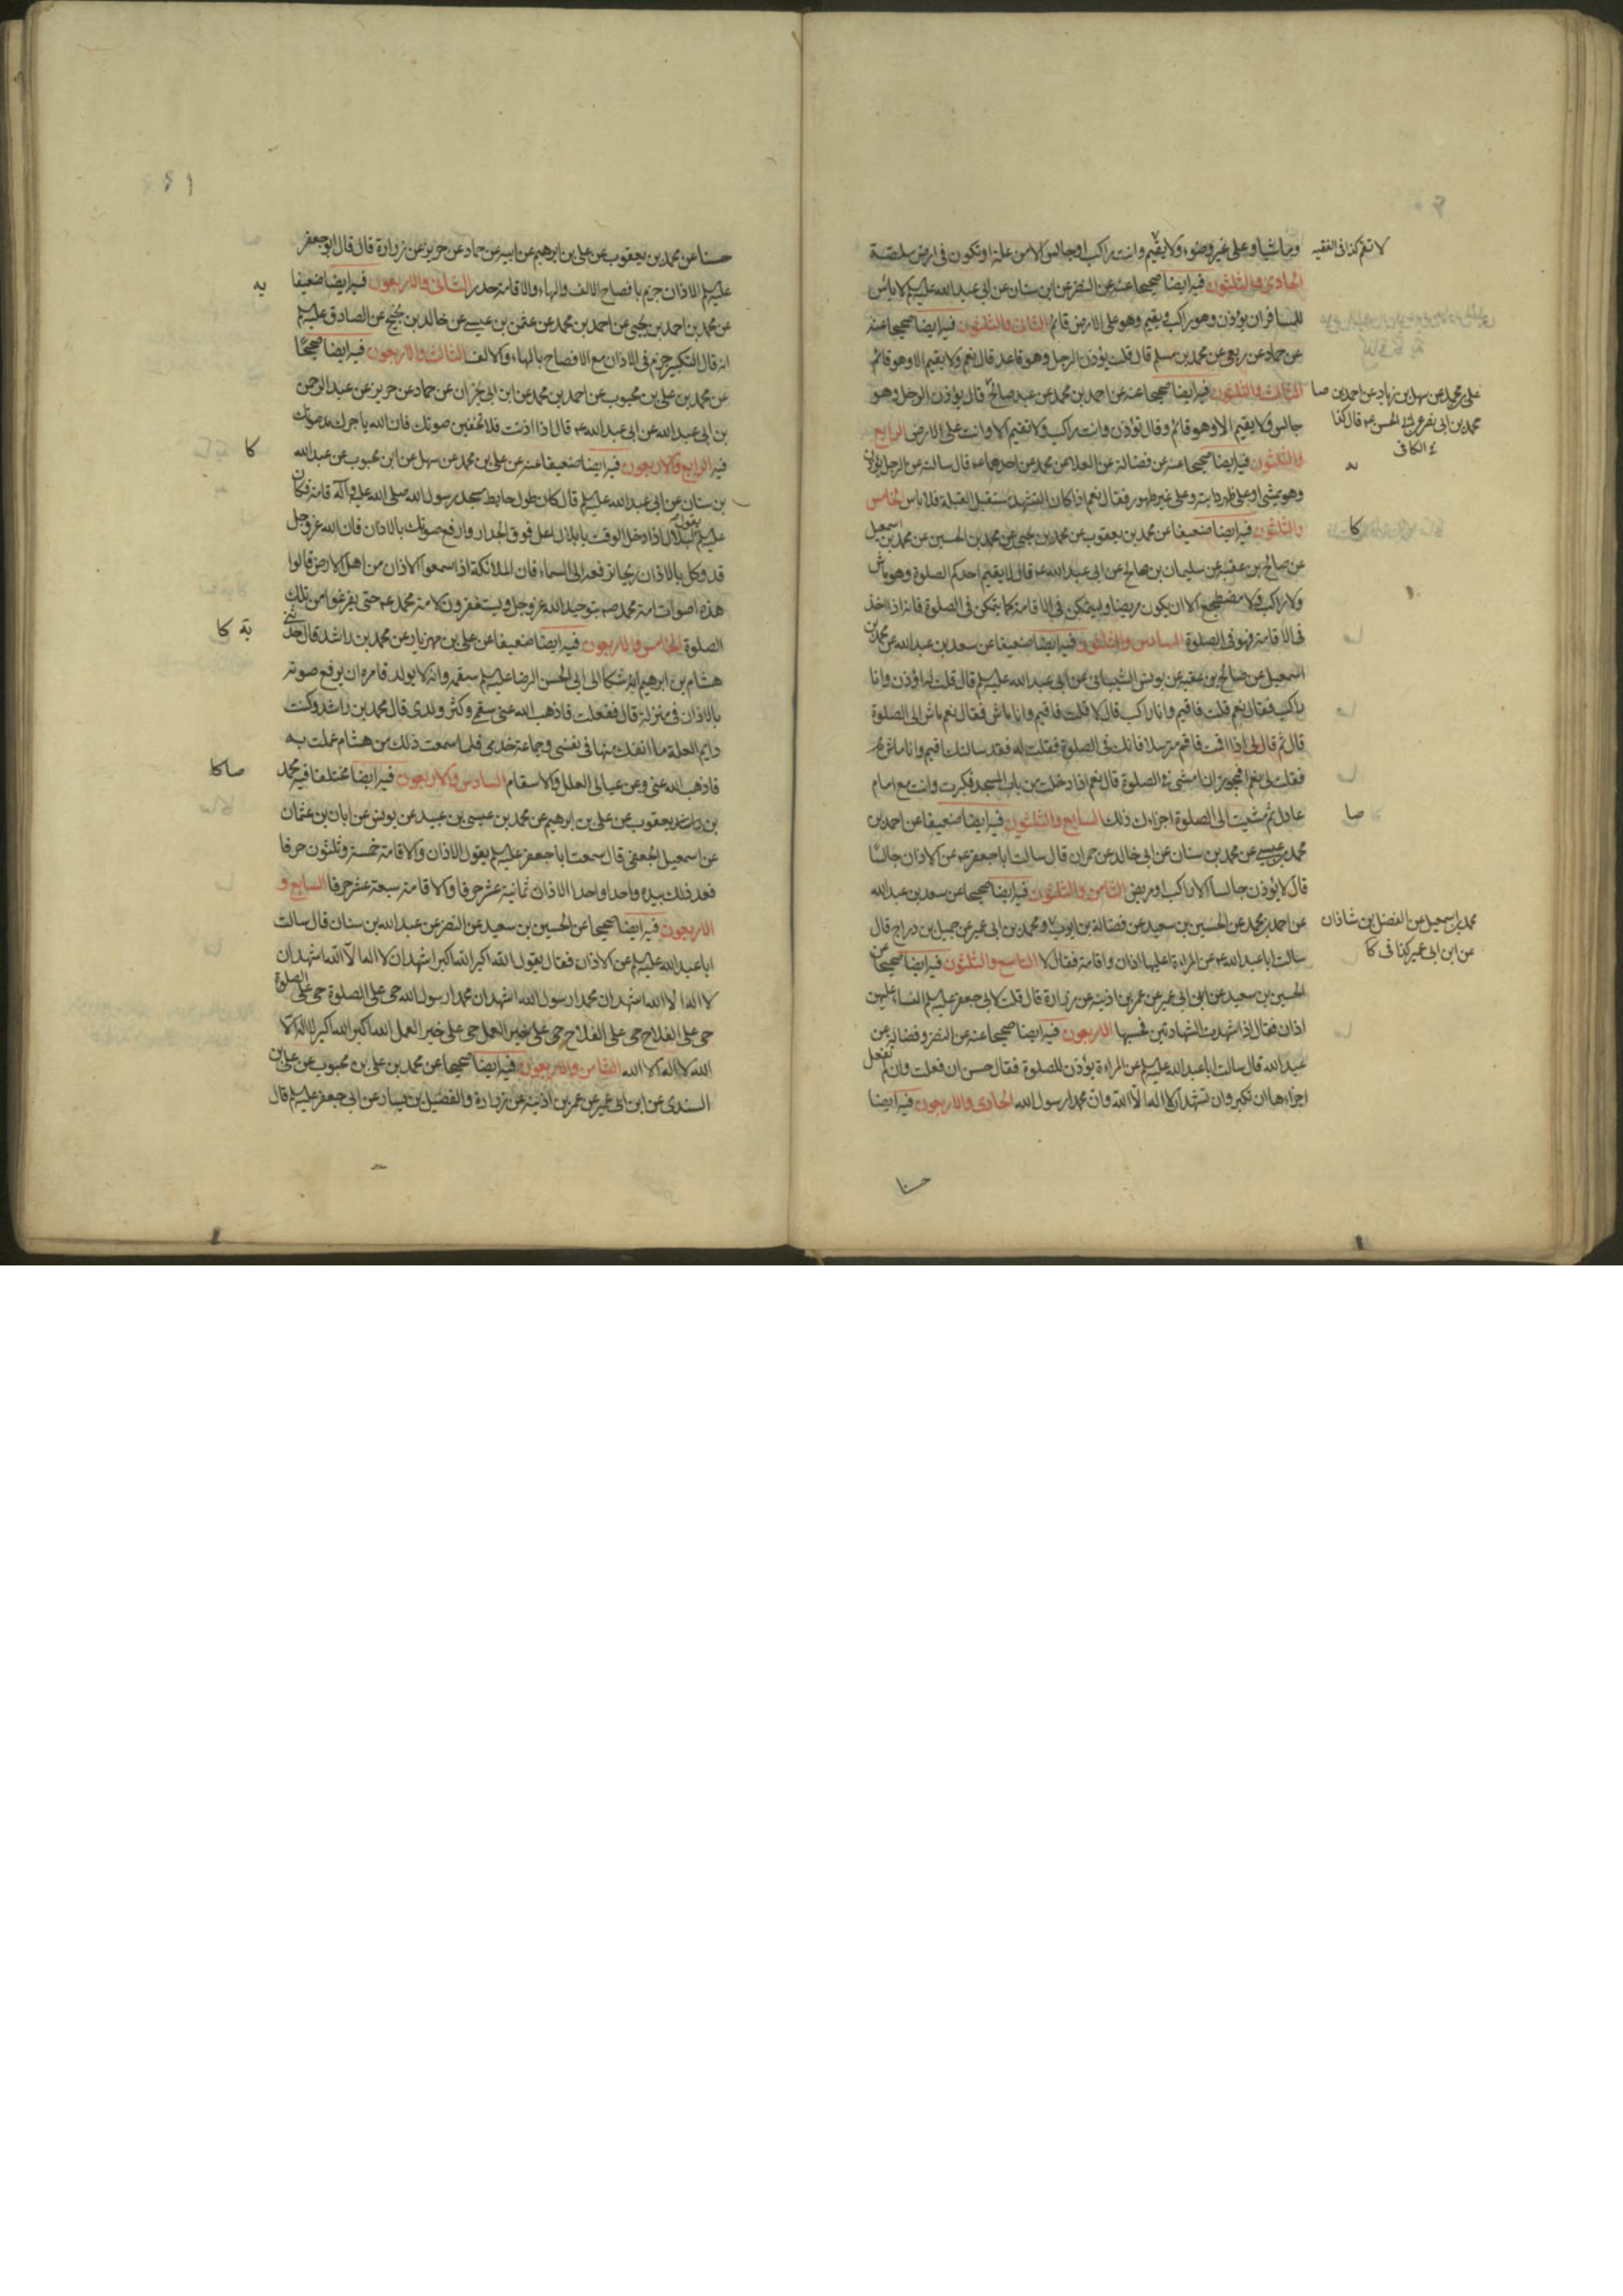 وماشيا وعلى غير وضوء ولا يقيم وانت راكب او جالس الا من علة او تكون فى ارض ملصة
لا تقم كذا فى الفقيه
الحادى والثلثون فيه ايضا صحيحا عنه عن النضر عن ابن سنان عن ابى عبد الله عليه السلم لا باس
للمسافر ان يؤذن وهو راكب ويقيم وهو على الارض قائم الثانى والثلثون فيه ايضا صحيحا عنه
عن حماد عن ربعى عن محمد بن مسلم قال قلت يؤذن الرجل وهو قاعد قال نعم ولا يقيم الا وهو قائم
الثالث والثلثون فيه ايضا صحيحا عنه عن احمد بن محمد عن عبد صالح قال يؤذن الرجل وهو
على بن محمد عن سهل بن زياد عن احمد بن صا
جالس ولا يقيم الا وهو قائم وقال تؤذن وانت راكب ولا تقيم الا وانت على الارض الرابع
محمد بن ابى نصر عن ابى الحسن ع قال كذا
فى الكافى
والثلثون فيه ايضا صحيحا عنه عن فضالة عن العلا عن محمد عن احدهما ع قال سالته عن الرجل يؤذن
وهو يمشى او على ظهر دابته وعلى غير طهور فقال نعم اذا كان التشهد مستقبل القبلة فلا باس الخامس
والثلثون فيه ايضا ضعيفا عن محمد بن يعقوب عن محمد بن يحيى عن محمد بن الحسين عن محمد بن اسمعيل
كا
عن صالح بن عقبة عن سليمان بن صالح عن ابى عبد الله ع قال لا يقيم احدكم الصلوة وهو ماش
ولا راكب ولا مضطجع الا ان يكون مريضا وليتمكن فى الاقامة كما يتمكن فى الصلوة فانه اذا اخذ
فى الاقامة فهو فى الصلوة السادس والثلثون فيه ايضا ضعيفا عن سعد بن عبد الله عن محمد بن
اسمعيل عن صالح بن عقبة عن يونس الشيبانى عن ابى عبد الله عليه السلم قال قلت له اؤذن وانا
راكب فقال نعم قلت فاقيم وانا راكب قال لا قلت فاقيم وانا ماش فقال نعم ماش الى الصلوة
قال ثم قال لى اذا اقمت فاقم مترسلا فانك فى الصلوة فقلت له فقد سالتك اقيم وانا ماش
فقلت لى نعم افيجوز ان امشى فى الصلوة قال نعم اذا دخلت من باب المسجد فكبرت وانت مع امام
عادل ثم مشيت الى الصلوة اجزاءك ذلك السابع والثلثون فيه ايضا ضعيفا عن احمد بن
صا
محمد بن عيسى عن محمد بن سنان عن ابى خالد عن حمران قال سالت ابا جعفر ع عن الاذان جالسا
قال لا يؤذن جالسا الا راكب او مريض الثامن والثلثون فيه ايضا صحيحا عن سعد بن عبد الله
عن احمد بن محمد عن الحسين بن سعيد عن فضالة بن ايوب ومحمد بن ابى عمير عن جميل بن دراج قال
محمد بن اسمعيل عن الفضل بن شاذان
عن ابن ابى عمير كذا فى كا
سالت ابا عبد الله ع عن المراءة اعليها اذان واقامة فقال لا التاسع والثلثون فيه ايضا صحيحا عن
الحسين بن سعيد عن ابن ابى عمير عن عمر بن اذينه عن زرارة قال قلت لابى جعفر عليه السلم النساء عليهن
اذان فقال اذا شهدت الشهادتين فحسبها الاربعون فيه ايضا صحيحا عنه عن النضر وفضالة عن
عبد الله قال سالت ابا عبد الله عليه السلم عن المراءة تؤذن للصلوة فقال حسن ان فعلت وان لم تفعل
اجزاءها ان تكبر وان تشهد ان لا اله الا الله وان محمدا رسول الله الحادى والاربعون فيه ايضا
حسنا
حسنا عن محمد بن يعقوب عن على بن ابرهيم عن ابيه عن حماد عن حريز عن زرارة قال قال ابو جعفر
عليه السلم الاذان جزم بافصاح الالف والهاء والاقامة حدر الثانى والاربعون فيه ايضا ضعيفا
يه
عن محمد بن احمد بن يحيى عن احمد بن محمد عن عثمن بن عيسى عن خالد بن نجيح عن الصادق عليه السلم
انه قال التكبير جزم فى الاذان مع الافصاح بالهاء والالف الثالث والاربعون فيه ايضا صحيحا
عن محمد بن على بن محبوب عن احمد بن محمد عن ابن ابى نجران عن حماد عن حريز عن عبد الرحمن
بن ابى عبد الله عن ابى عبد الله ع قال اذا اذنت فلا تخفين صوتك فان الله ياجرك مد صوتك
فيه الرابع والاربعون فيه ايضا ضعيفا عنه عن على بن محمد عن سهل عن ابن محبوب عن عبد الله
كا
بن سنان عن ابى عبد الله عليه السلم قال كان طول حايط مسجد رسول الله صلى الله عليه وآله قامة فكان
عليه السلم يقول لبلال اذا دخل الوقت يا بلال اعل فوق الجدار وارفع صوتك بالاذان فان الله عز وجل
قد وكل بالاذان ريحا ترفعه الى السماء فان الملائكة اذا سمعوا الاذان من اهل الارض قالوا
هذه اصوات امة محمد ص بتوحيد الله عز وجل ويستغفرون لامة محمد ع حتى يفرغوا من تلك
الصلوة الخامس والاربعون فيه ايضا ضعيفا عن على بن مهزيار عن محمد بن راشد قال حدثنى
يه كا
هشام بن ابرهيم انه شكا الى ابى الحسن الرضا عليه السلم سقمه وانه لا يولد فامره ان يرفع صوته
بالاذان فى منزله قال ففعلت فاذهب الله عنى سقمى وكثر ولدى قال محمد بن راشد وكنت
دايم العلة ما انفك منها فى نفسى وجماعة خدمى فلما سمعت ذلك من هشام عملت به
فاذهب الله عنى وعن عيالى العلل والاسقام السادس والاربعون فيه ايضا مختلفا فيه محمد
صا كا
بن يعقوب عن على بن ابرهيم عن محمد بن عيسى بن عبيد عن يونس عن ابان بن عثمان
عن اسمعيل الجعفى قال سمعت ابا جعفر عليه السلم يقول الاذان والاقامة خمسة وثلثون حرفا
فعد ذلك بيده واحدا واحدا الاذان ثمانية عشر حرفا والاقامة سبعة عشر حرفا السابع و
الاربعون فيه ايضا صحيحا عن الحسين بن سعيد عن النضر عن عبد الله بن سنان قال سالت
ابا عبد الله عليه السلم عن الاذان فقال يقول الله اكبر الله اكبر اشهد ان لا اله الا الله اشهد ان
لا اله الا الله اشهد ان محمدا رسول الله اشهد ان محمدا رسول الله حى على الصلوة حى على الصلوة
حى على الفلاح حى على الفلاح حى على خير العمل حى على خير العمل الله اكبر الله اكبر لا اله الا
الله لا اله الا الله الثامن والاربعون فيه ايضا صحيحا عن محمد بن على بن محبوب عن على بن
السندى عن ابن ابى عمير عن عمر بن اذينة عن زرارة والفضيل بن يسار عن ابى جعفر عليه السلم قال